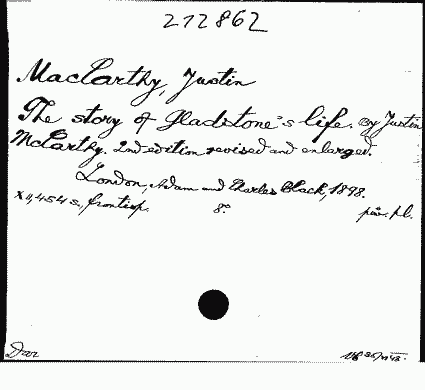 212862
MacCarthy, Justin
The story of Gladstone's life. By Justin
McCarthy. 2nd edition revised and enlarged.
London, Adam and Charles Black, 1898.
XII, 454 s., frontisp. 8° pův. pl.
Dar